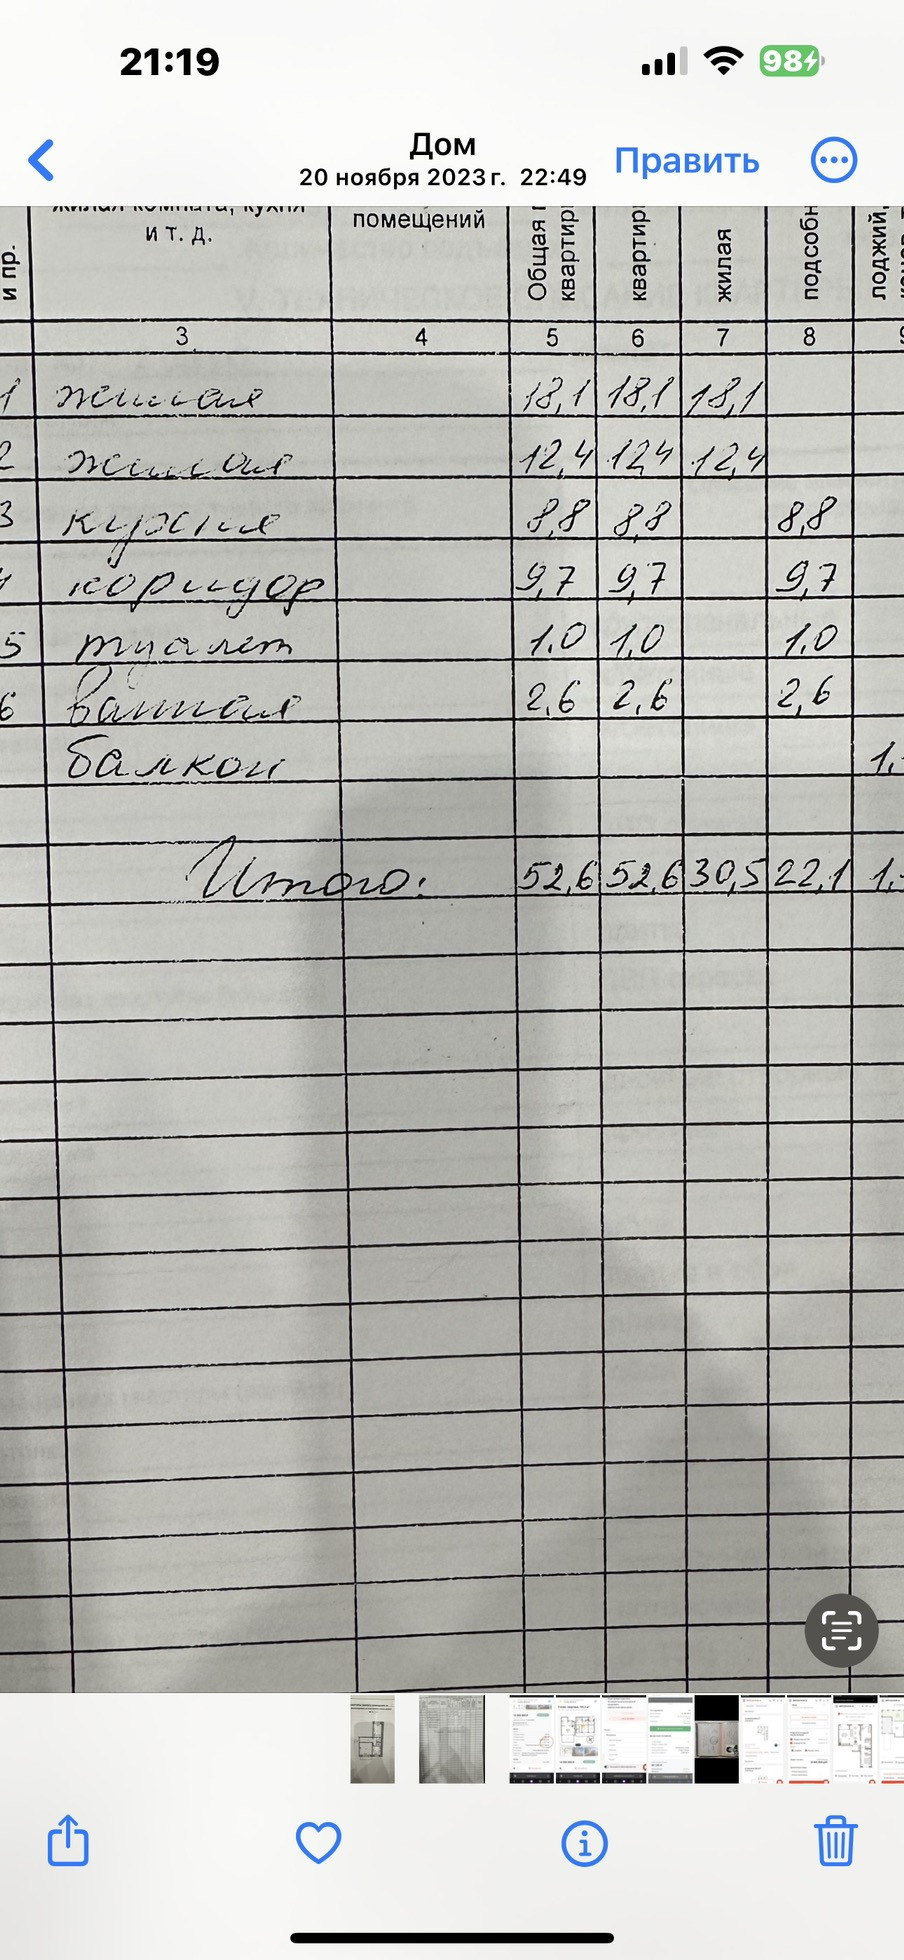 21:19
98
Дом
Править
20 ноября 2023 г. 22:49
жилая комната, кухня
и т. д.
помещений
и пр.
Общая
квартир
квартир
жилая
подсобн
лоджий,
3 4 5 6 7 8
1 жилая 18,1 18,1 18,1
2 жилая 12,4 12,4 12,4
3 кухня 8,8 8,8 8,8
4 коридор 9,7 9,7 9,7
5 туалет 1.0 1,0 1.0
6 ванная 2,6 2,6 2,6
балкон 1,
Итого: 52,6 52,6 30,5 22,1 1,